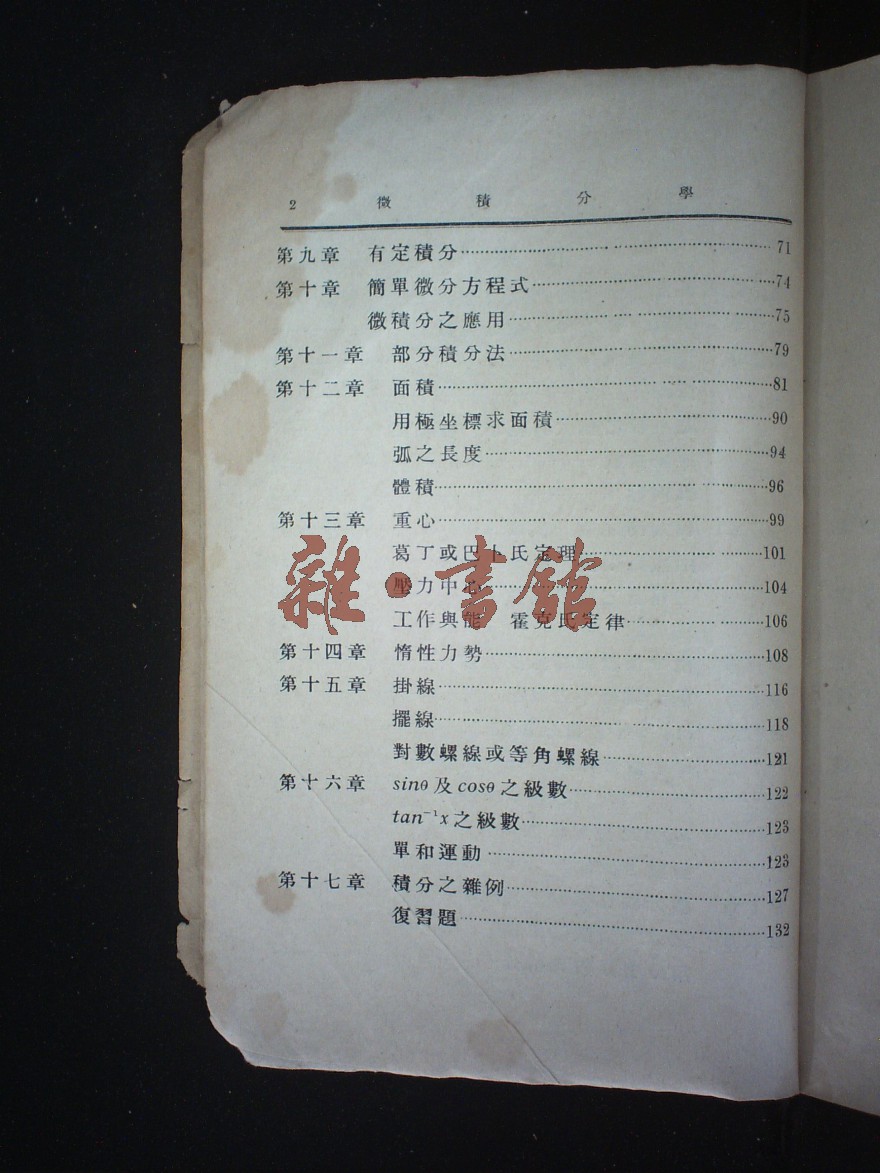 2 微積分學
第九章 有定積分 71
第十章 簡單微分方程式 74
微積分之應用 75
第十一章 部分積分法 79
第十二章 面積 81
用極坐標求面積 90
弧之長度 94
體積 96
第十三章 重心 99
葛丁或巴卜氏定理 101
壓力中心 104
工作與能 霍克氏定律 106
第十四章 惰性力勢 108
第十五章 掛線 116
擺線 118
對數螺線或等角螺線 121
第十六章 sinθ及cosθ之級數 122
tan⁻¹x之級數 123
單和運動 123
第十七章 積分之雜例 127
復習題 132
雜·書館